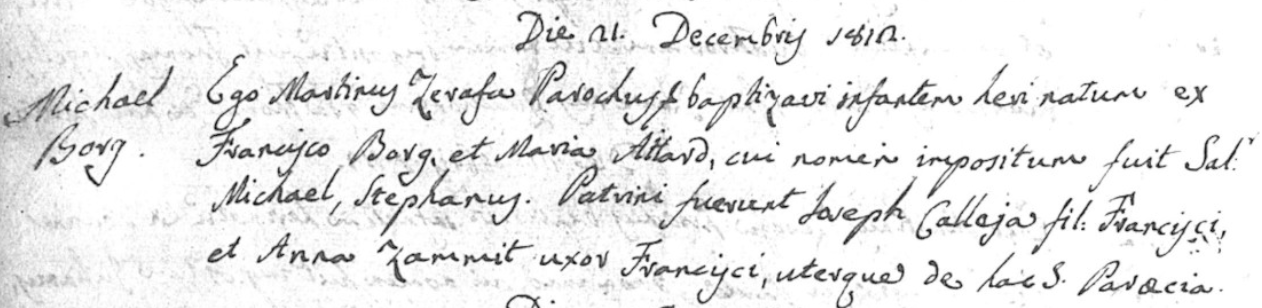 Die 21. Decembris 1812.
Michael Borg.
Ego Martinus Zerafa Parochus baptizavi infantem heri natum ex
Francisco Borg, et Maria Attard, cui nomen impositum fuit Sal:r
Michael, Stephanus. Patrini fuerunt Joseph Calleja fil: Francisci,
et Anna Zammit uxor Francisci, uterque de hac S. Paræcia.